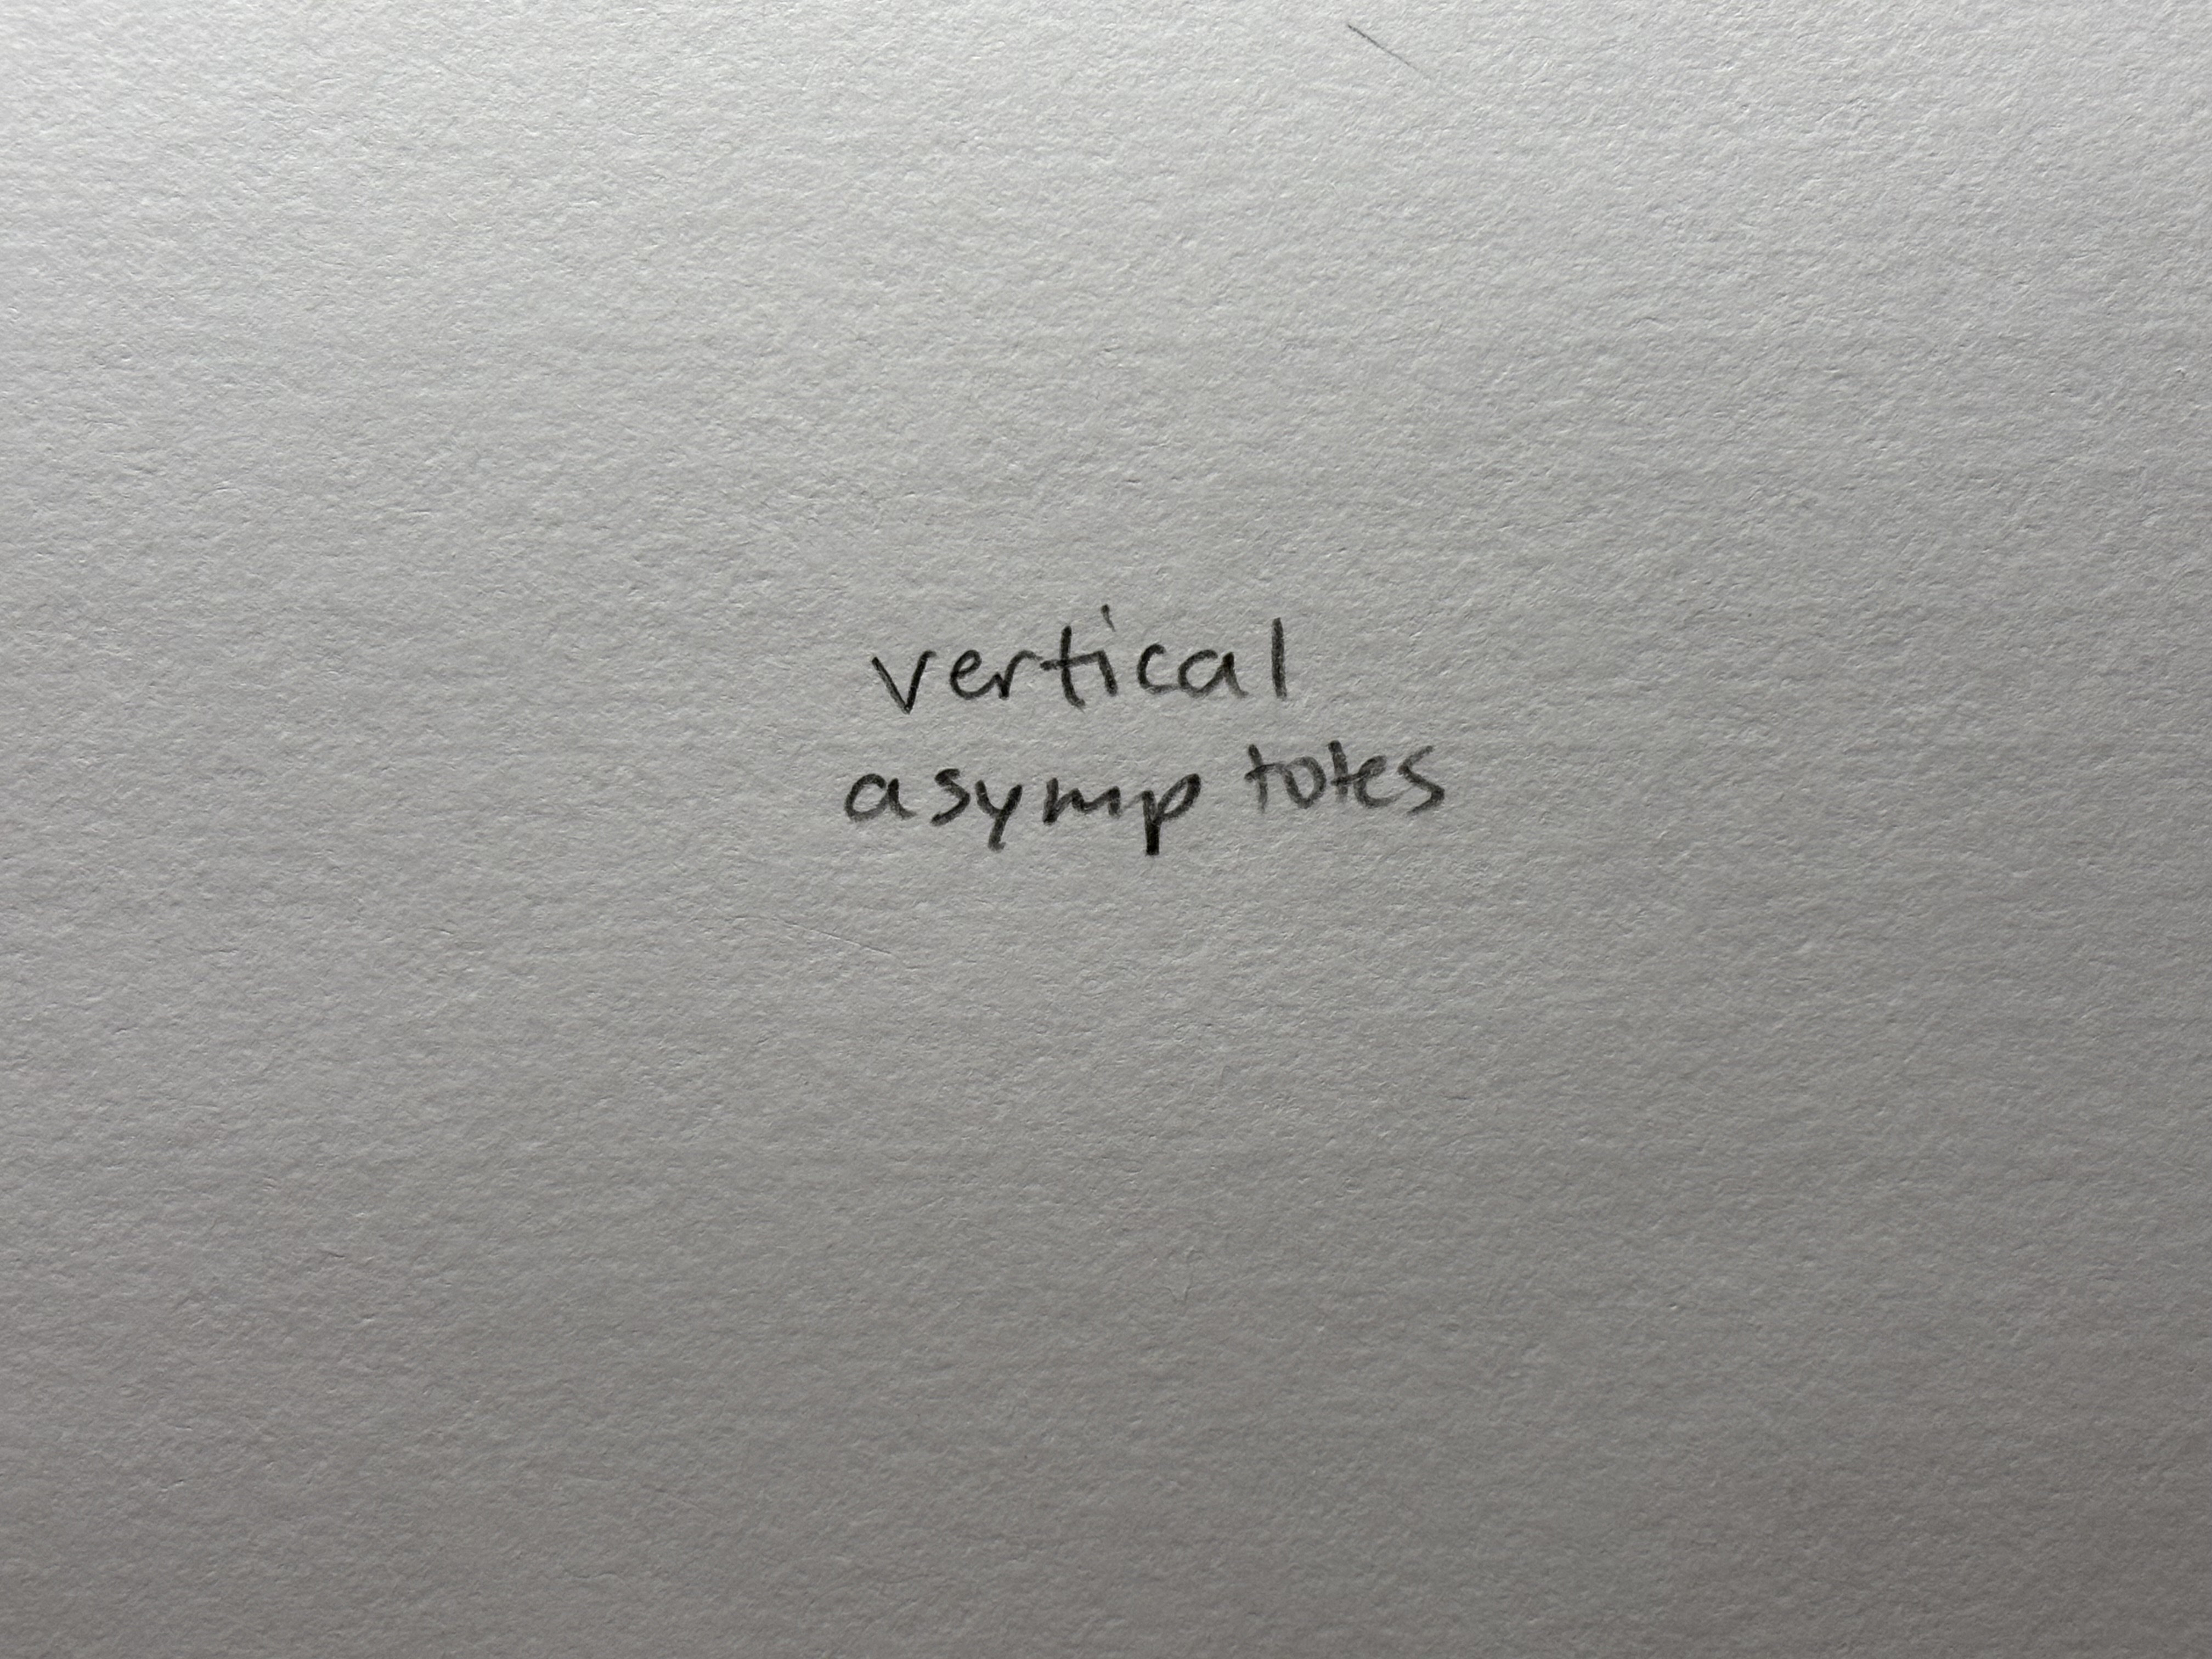 vertical
asymptotes